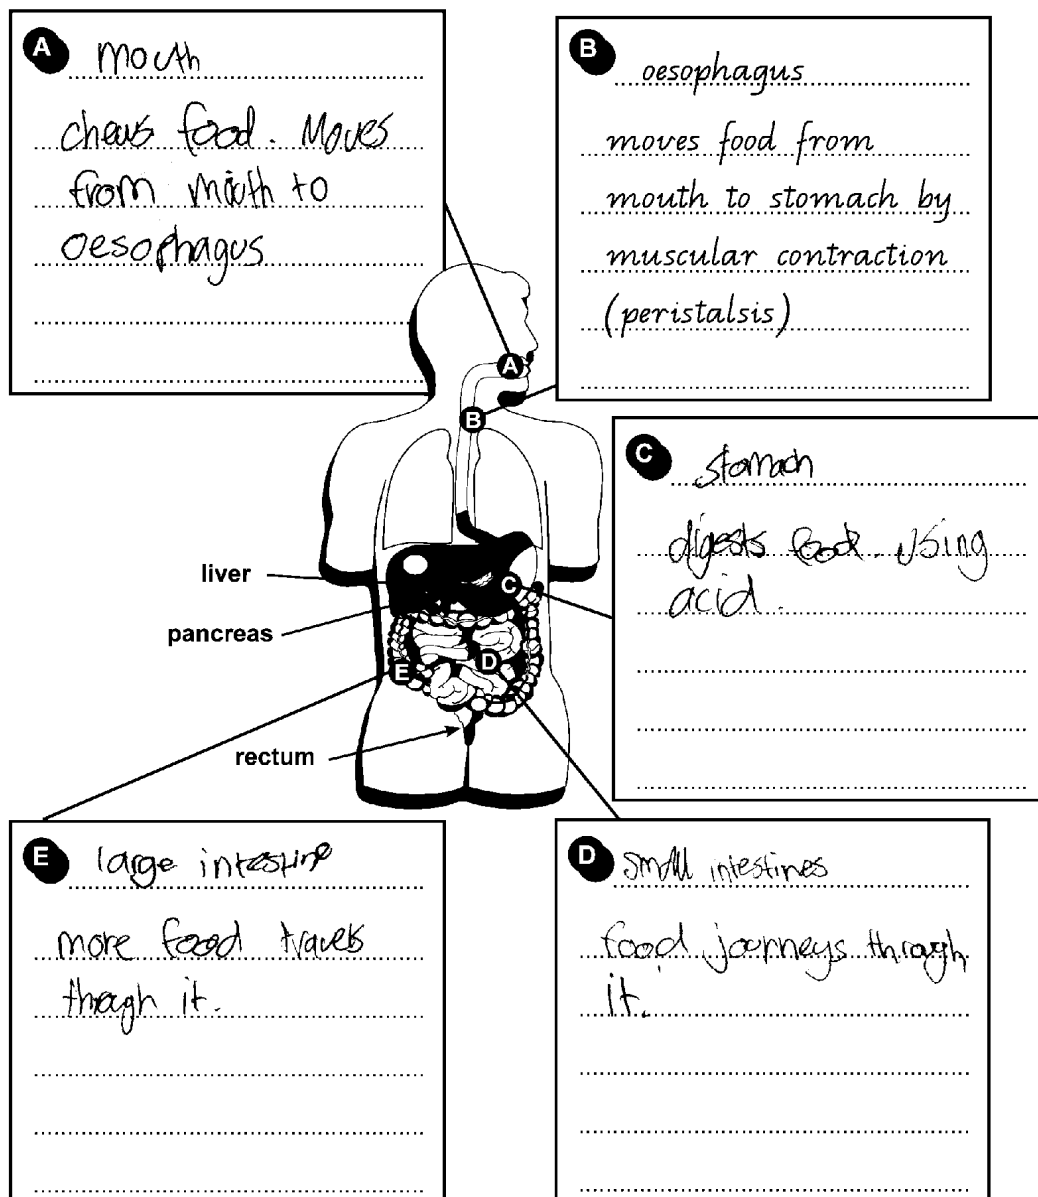 A mouth
chews food. Moves
from mouth to
oesophagus
B oesophagus
moves food from
mouth to stomach by
muscular contraction
(peristalsis)
A
B
C stomach
digests food. using
acid.
liver
pancreas
C
E
D
rectum
E large intestine
more food travels
through it.
D small intestines
food journeys through
it.